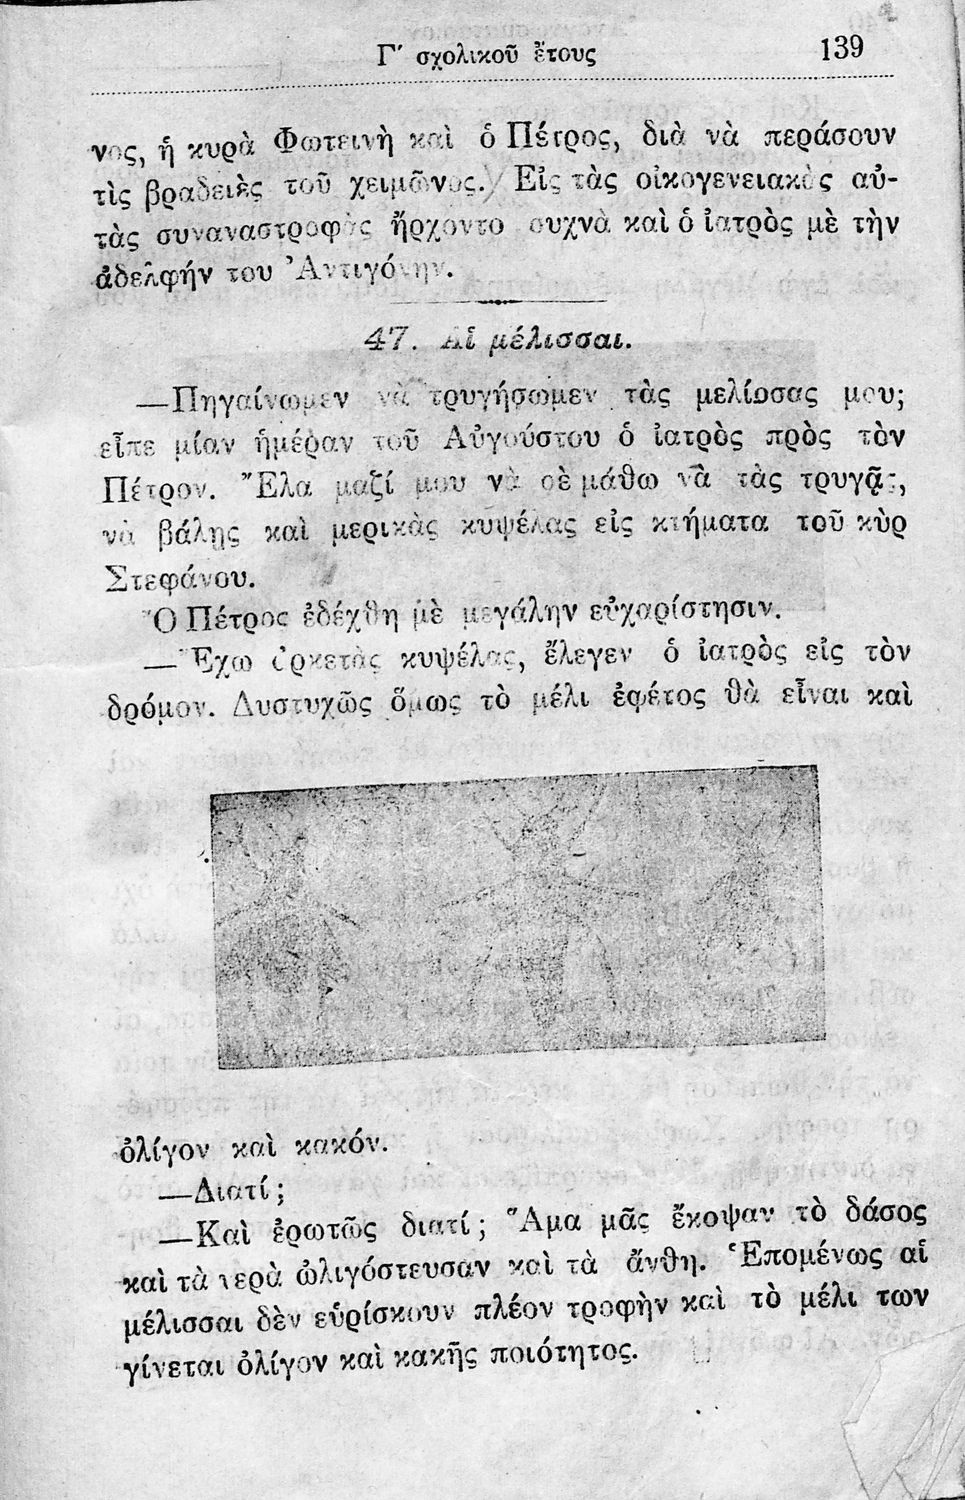 Γ΄ σχολικοῦ ἔτους 139
νος, ἡ κυρὰ Φωτεινὴ καὶ ὁ Πέτρος, διὰ νὰ περάσουν
τὶς βραδειὲς τοῦ χειμῶνος. Εἰς τὰς οἰκογενειακὰς αὐ-
τὰς συναναστροφὰς ἤρχοντο συχνὰ καὶ ὁ ἰατρὸς μὲ τὴν
ἀδελφήν του Ἀντιγόνην.
47. Αἱ μέλισσαι.
—Πηγαίνωμεν νὰ τρυγήσωμεν τὰς μελίσσας μου;
εἶπε μίαν ἡμέραν τοῦ Αὐγούστου ὁ ἰατρὸς πρὸς τὸν
Πέτρον. Ἔλα μαζί μου νὰ σὲ μάθω νὰ τὰς τρυγᾷς,
νὰ βάλῃς καὶ μερικὰς κυψέλας εἰς κτήματα τοῦ κὺρ
Στεφάνου.
Ὁ Πέτρος ἐδέχθη μὲ μεγάλην εὐχαρίστησιν.
—Ἔχω ἀρκετὰς κυψέλας, ἔλεγεν ὁ ἰατρὸς εἰς τὸν
δρόμον. Δυστυχῶς ὅμως τὸ μέλι ἐφέτος θὰ εἶναι καὶ
ὀλίγον καὶ κακόν.
—Διατί;
—Καὶ ἐρωτῶς διατί; Ἅμα μᾶς ἔκοψαν τὸ δάσος
καὶ τὰ νερὰ ὠλιγόστευσαν καὶ τὰ ἄνθη. Ἑπομένως αἱ
μέλισσαι δὲν εὑρίσκουν πλέον τροφὴν καὶ τὸ μέλι των
γίνεται ὀλίγον καὶ κακῆς ποιότητος.